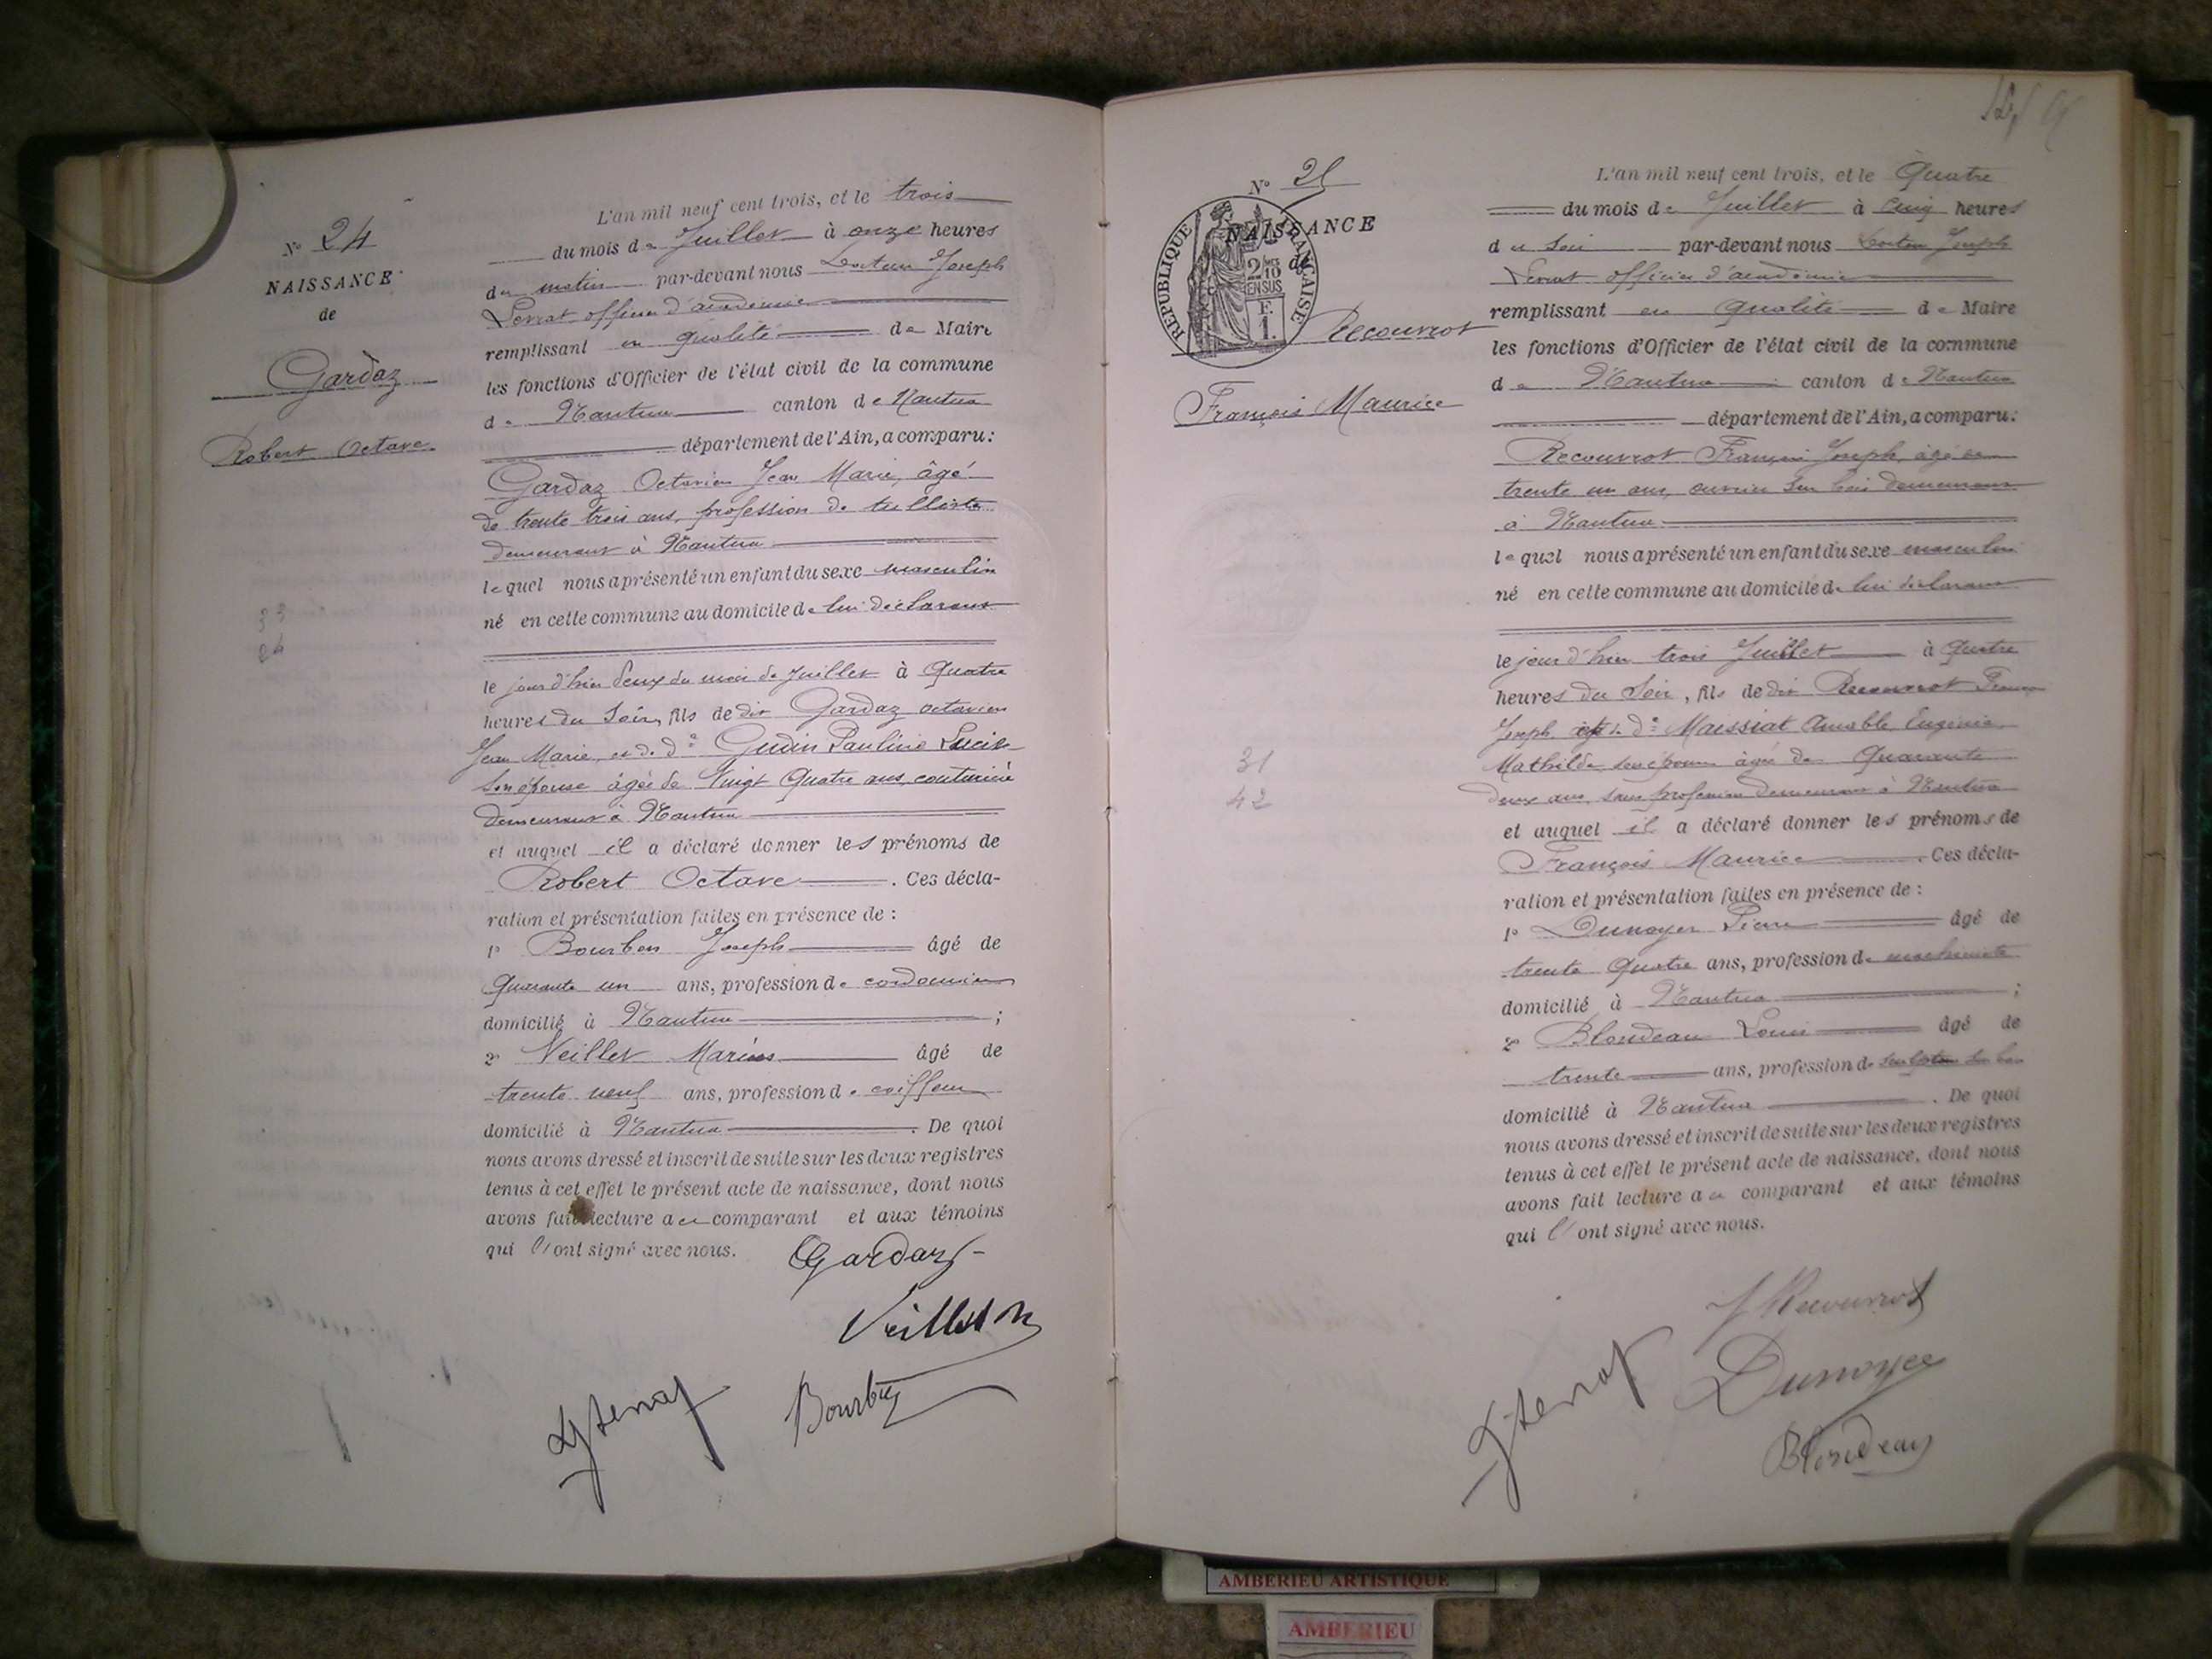 N° 24
NAISSANCE
de
Gardaz
Robert Octave
33
24
L'an mil neuf cent trois, et le trois
du mois de Juillet à onze heures
du matin par-devant nous Docteur Joseph
officier d'académie
remplissant en qualité de Maire
les fonctions d'Officier de l'état civil de la commune
de Nantua canton de Nantua
département de l'Ain, a comparu:
Gardaz Octavien Jean Marie, âgé
de trente trois ans, profession de tulliste
demeurant à Nantua
lequel nous a présenté un enfant du sexe masculin
né en cette commune au domicile de lui déclarant
le jour d'hier deux du mois de Juillet à Quatre
heures du Soir, fils de dit Gardaz octavien
Jean Marie, et de de Gudin Pauline Lucie
son épouse âgée de Vingt Quatre ans, couturière
demeurant à Nantua
et auquel il a déclaré donner les prénoms de
Robert Octave. Ces décla-
ration et présentation faites en présence de :
1° Bourbon Joseph âgé de
Quarante un ans, profession de cordonnier
domicilié à Nantua ;
2° Veillet Marius âgé de
trente neuf ans, profession de coiffeur
domicilié à Nantua. De quoi
nous avons dressé et inscrit de suite sur les deux registres
tenus à cet effet le présent acte de naissance, dont nous
avons fait lecture au comparant et aux témoins
qui l'ont signé avec nous.
Gardaz
Veillet M
Bourbon
N° 25
NAISSANCE
de
RÉPUBLIQUE FRANÇAISE
2/10 EN SUS
F. 1.
Recouvrot
François Maurice
31
42
L'an mil neuf cent trois, et le Quatre
du mois de Juillet à Cinq heures
du Soir par-devant nous Docteur Joseph
officier d'académie
remplissant en Qualité de Maire
les fonctions d'Officier de l'état civil de la commune
de Nantua canton de Nantua
département de l'Ain, a comparu:
Recouvrot François Joseph, âgé de
trente un ans, ouvrier sur bois demeurant
à Nantua
lequel nous a présenté un enfant du sexe masculin
né en cette commune au domicile de lui déclarant
le jour d'hier trois Juillet à Quatre
heures du Soir, fils de dit Recouvrot François
Joseph et de de Maissiat Amable Eugénie
Mathilde, son épouse âgée de Quarante
deux ans, sans profession demeurant à Nantua
et auquel il a déclaré donner les prénoms de
François Maurice. Ces décla-
ration et présentation faites en présence de :
1° Dunoyer Pierre âgé de
trente Quatre ans, profession de machiniste
domicilié à Nantua ;
2° Blondeau Louis âgé de
trente ans, profession de sculpteur sur bois
domicilié à Nantua. De quoi
nous avons dressé et inscrit de suite sur les deux registres
tenus à cet effet le présent acte de naissance, dont nous
avons fait lecture au comparant et aux témoins
qui l'ont signé avec nous.
Recouvrot
Dunoyer
Blondeau
AMBERIEU ARTISTIQUE
AMBERIEU